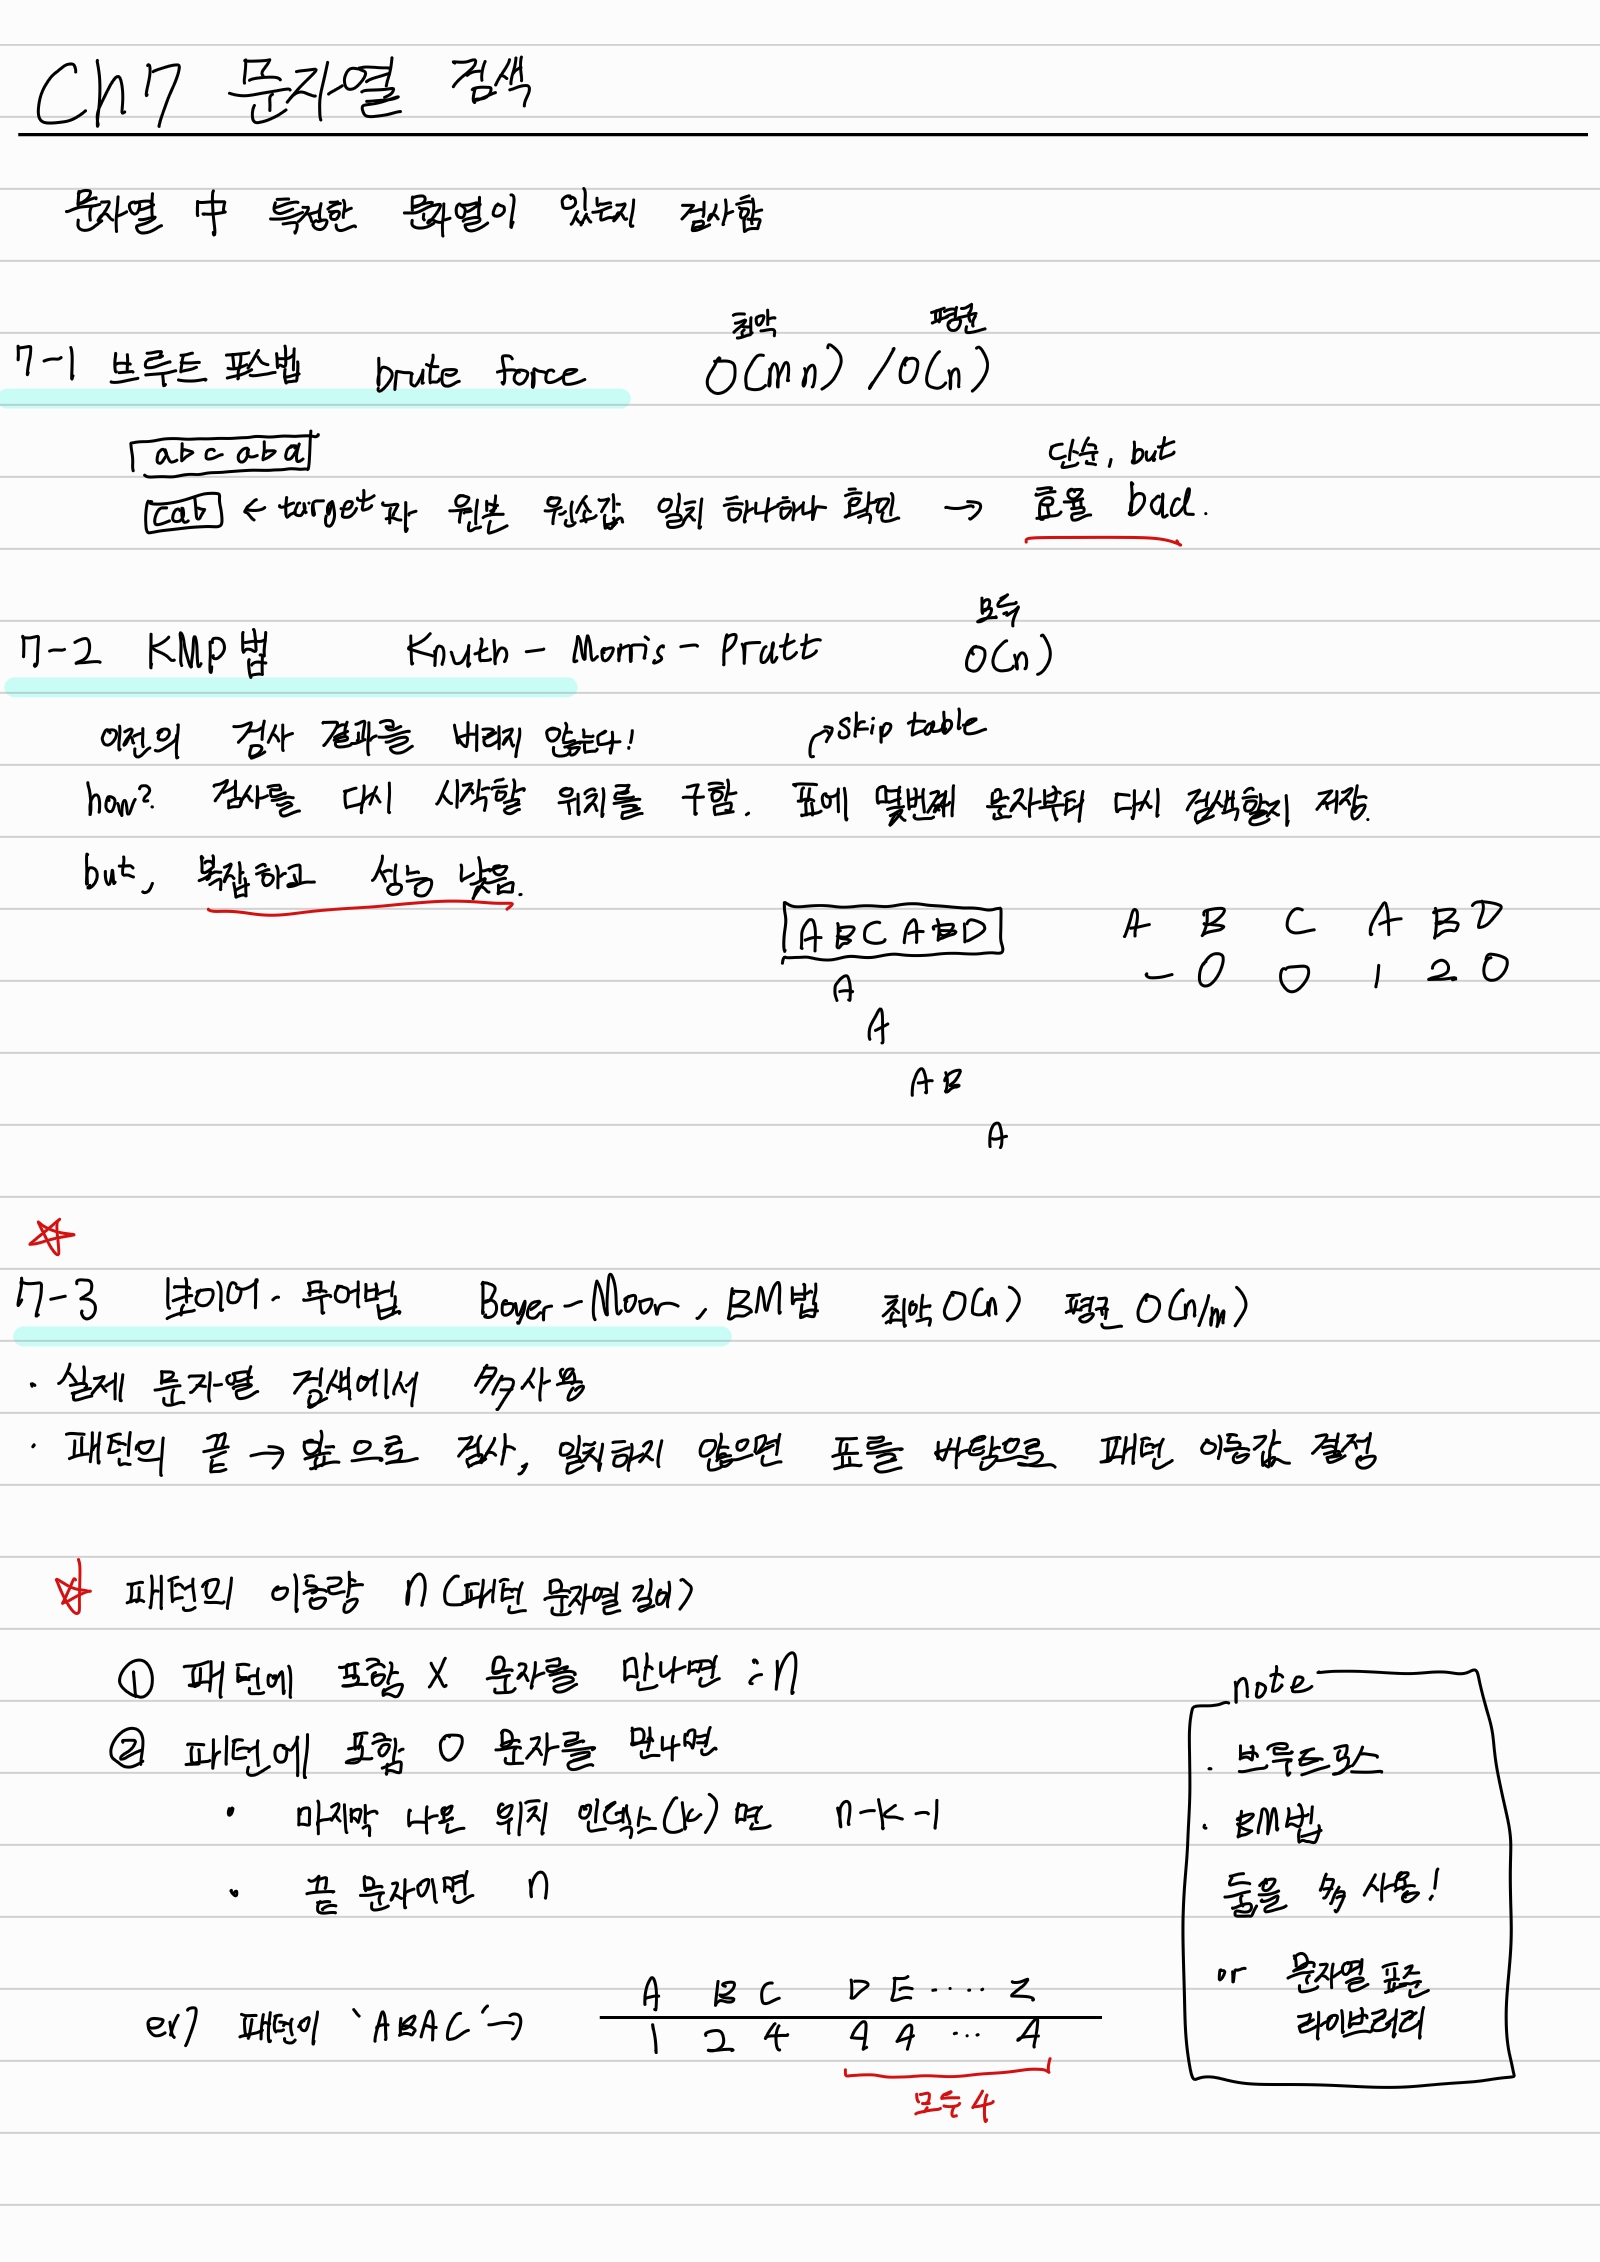 Ch7 문자열 검색
문자열 中 특정한 문자열이 있는지 검사함
최악 평균
7-1 브루트 포스법 brute force O(mn) / O(n)
abcaba
단순, but
cab ← target과 원본 원소값 일치 하나하나 확인 → 효율 bad.
모두
7-2 KMP법 Knuth - Morris - Pratt O(n)
이전의 검사 결과를 버리지 않는다!
skip table
how? 검사를 다시 시작할 위치를 구함. 표에 몇번째 문자부터 다시 검색할지 저장.
but, 복잡하고 성능 낮음.
ABCABD A B C A B D
- 0 0 1 2 0
A
A
AB
A
7-3 보이어·무어법 Boyer-Moor, BM법 최악 O(n) 평균 O(n/m)
· 실제 문자열 검색에서 多사용
· 패턴의 끝 → 앞으로 검사, 일치하지 않으면 표를 바탕으로 패턴 이동값 결정
패턴의 이동량 n (패턴 문자열 길이)
① 패턴에 포함 X 문자를 만나면 : n
② 패턴에 포함 O 문자를 만나면
· 마지막 나온 위치 인덱스(k)면 n-k-1
· 끝 문자이면 n
ex) 패턴이 'ABAC' →
A B C D E ····· Z
1 2 4 4 4 ··· 4
모두 4
note
· 브루트포스
· BM법
둘을 多 사용!
or 문자열 표준
라이브러리